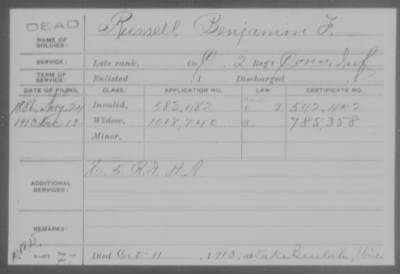 DEAD
NAME OF SOLDIER: Russell, Benjamin F.
SERVICE: Late rank, Co. 2 Reg't Inf.
TERM OF SERVICE: Enlisted 1 Discharged
DATE OF FILING. CLASS. APPLICATION NO. LAW. CERTIFICATE NO.
24 Invalid, 583,482 542,402
1913 Dec 12 Widow, 1018,740 785,358
Minor,
ADDITIONAL SERVICES:
REMARKS:
Died Oct 11, 1913, at Lake Beulah, Wis.